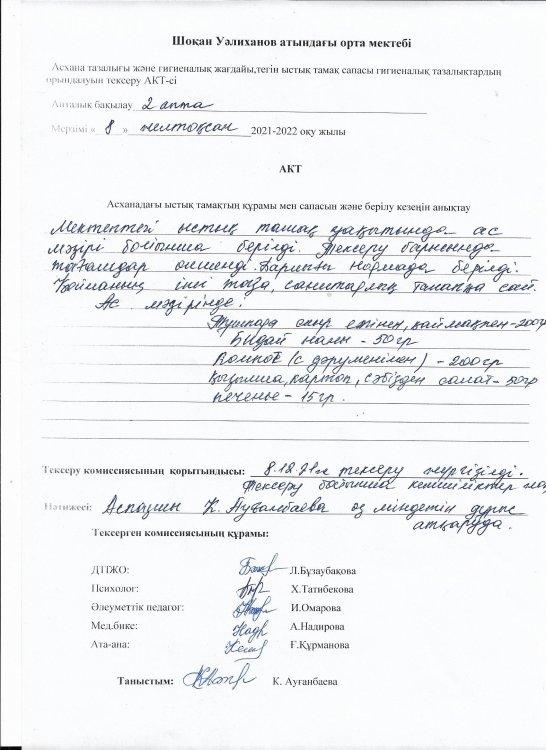 Шоқан Уәлиханов атындағы орта мектебі
Асхана тазалығы және гигиеналық жағдайы,тегін ыстық тамақ сапасы гигиеналық тазалықтардың
орындалуын тексеру АКТ-сі
Апталық бақылау 2 апта
Мерзімі « 8 » желтоқсан 2021-2022 оқу жылы
АКТ
Асханадағы ыстық тамақтың құрамы мен сапасын және берілу кезеңін анықтау
Мектептегі ыстық тамақ уақытында ас
мәзірі бойынша берілді. Тексеру барысында
тағамдар өлшенді. Барлығы нормада берілді.
Қойманың іші таза, санитарлық талапқа сай.
Ас мәзірінде:
Тушпара сиыр етінен, қаймақпен-200гр
Бидай наны - 50гр
Компот (с дәруменімен) - 200гр
Қызылша, картоп, сәбізден салат- 50гр
печенье - 15гр.
Тексеру комиссиясының қорытындысы: 8.12.21ж тексеру жүргізілді.
Тексеру бойынша кемшіліктер
Нәтижесі: Аспазшы К. Ауғанбаева өз міндетін дұрыс
атқаруда.
Тексерген комиссиясының құрамы:
ДТІЖО: Л.Бұзаубақова
Психолог: Х.Татибекова
Әлеуметтік педагог: И.Омарова
Мед.бике: А.Надирова
Ата-ана: Ғ.Құрманова
Таныстым: К. Ауғанбаева